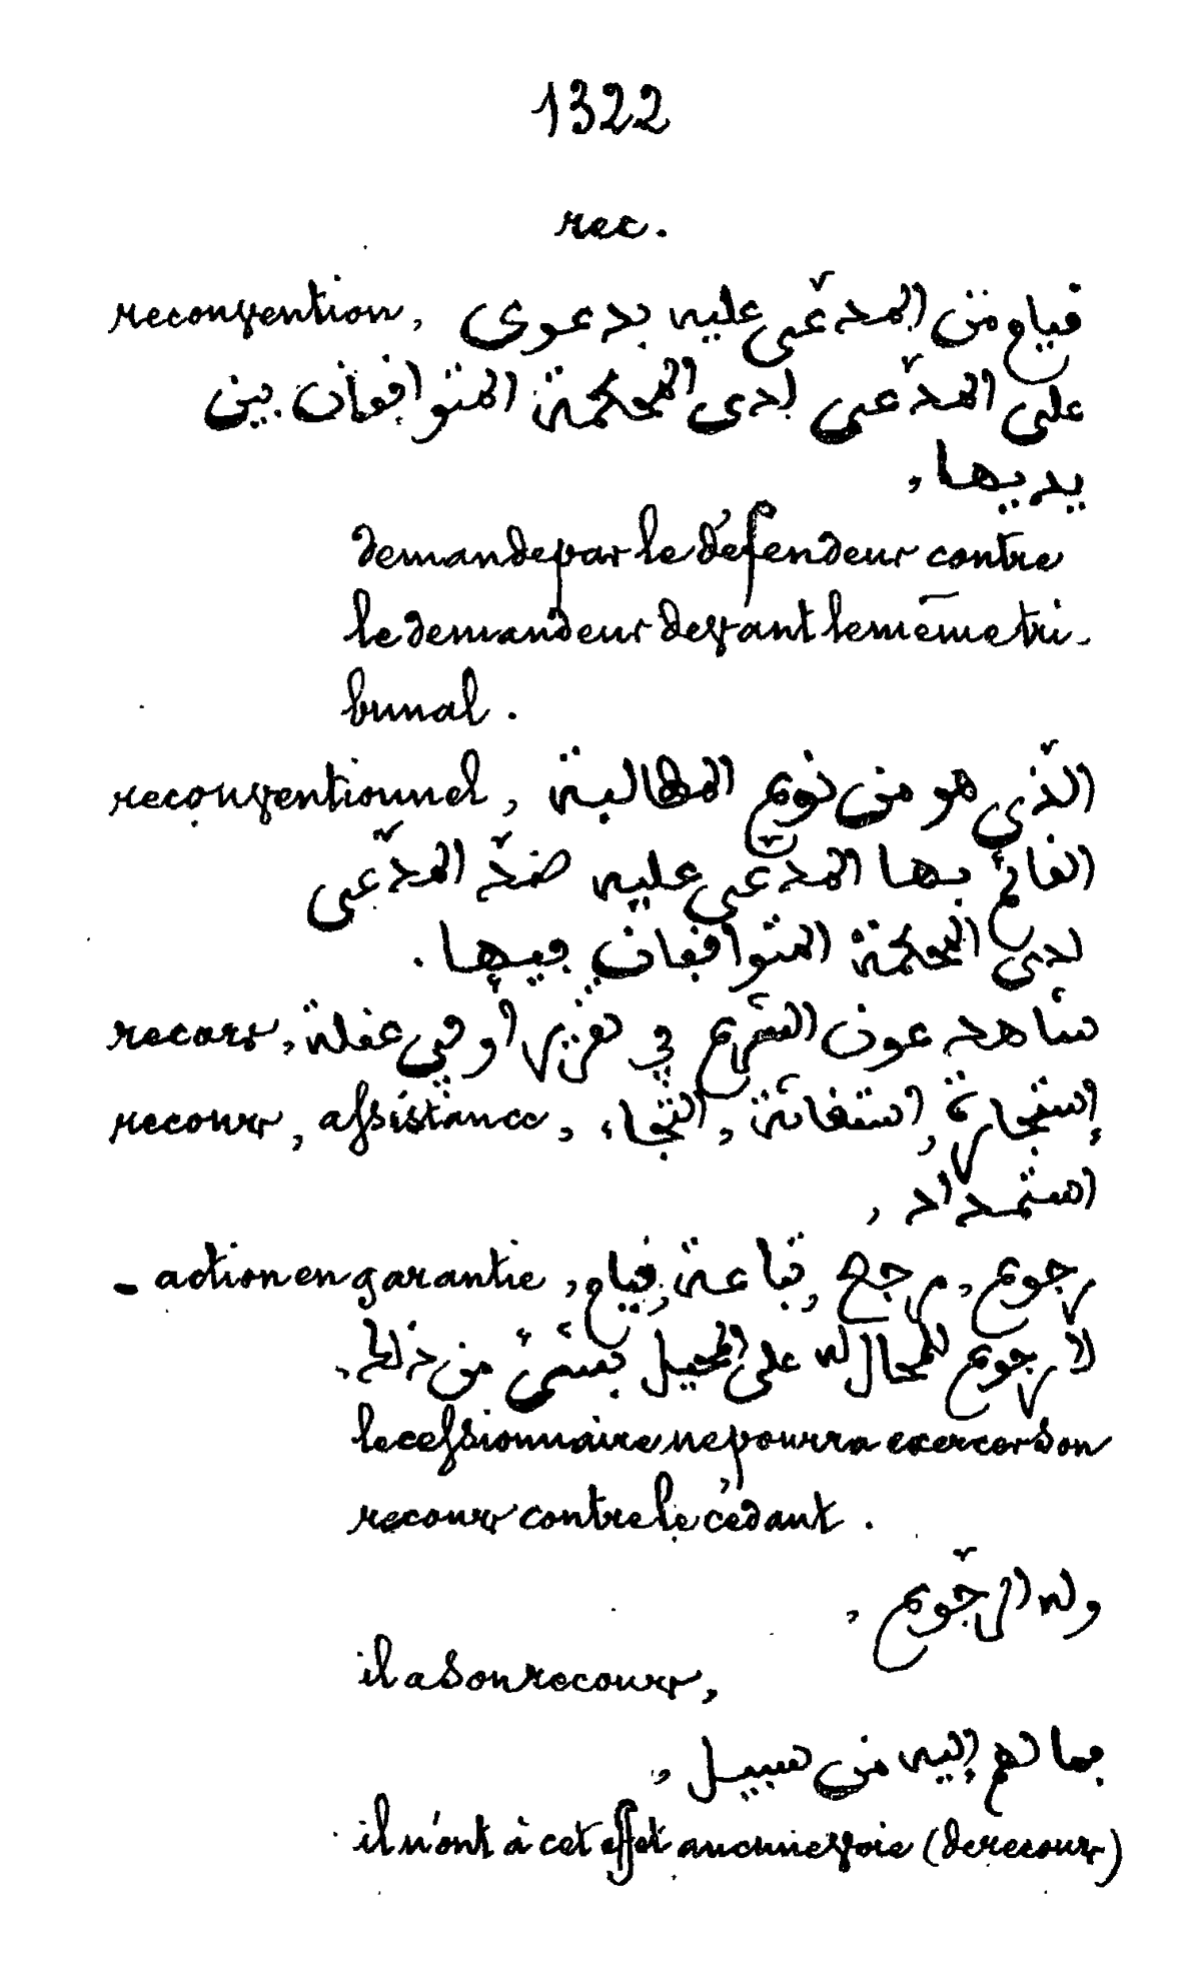 1322
rec.
reconvention, قيام من المدّعى عليه بدعوى
على المدّعي لدى المحكمة المتوافقان بين
يديها,
demande par le défendeur contre
le demandeur devant le même tri-
bunal.
reconventionnel, الّذي هو من نوع المطالبة
القائم بها المدّعى عليه ضدّ المدّعي
لدى المحكمة المتوافقان فيها.
recors, شاهد عون الشرع في تقرير أو في عقلة
recours, assistance, إستجارة, استغاثة, التجاء,
استمداد,
- action en garantie, رجوع, مرجع, تباعة, قيام
لا رجوع للمحال له على المحيل بشيئ من ذلك,
le cessionnaire ne pourra exercer son
recours contre le cédant.
وله الرّجوع,
il a son recours,
فما لهم إليه من سبيل,
il n'ont à cet effet aucune voie (de recours)